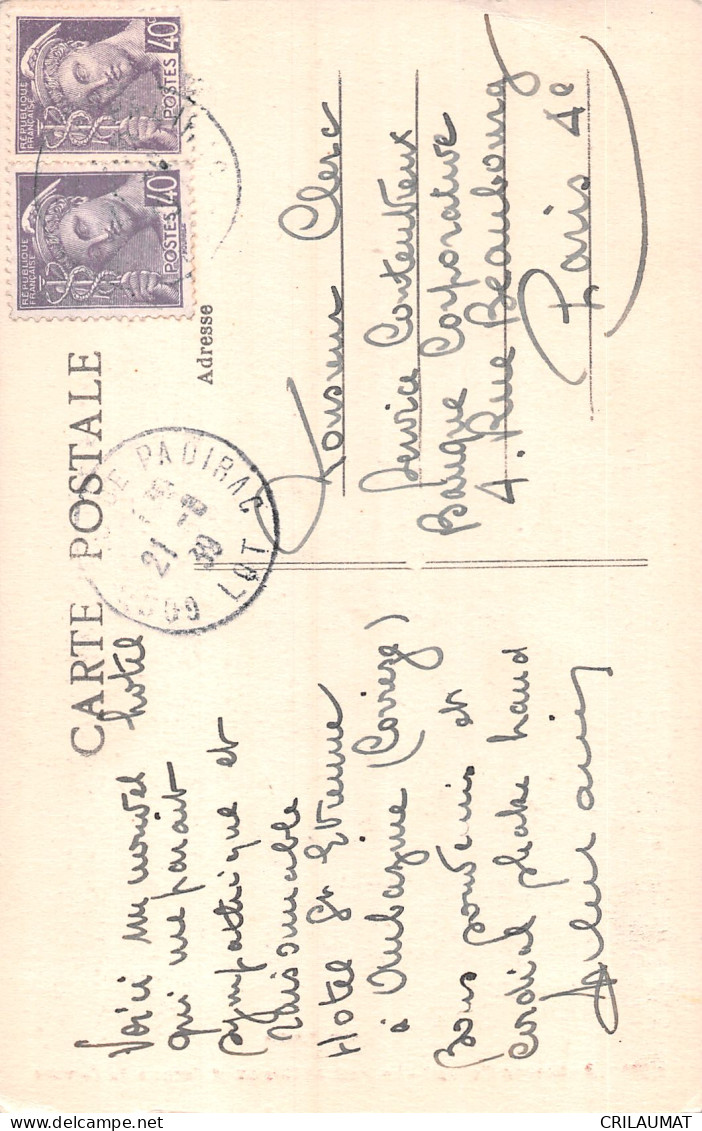 CARTE POSTALE
Voici un nouvel hôtel
qui me parait
sympathique et
raisonnable
Hotel St Etienne
à Aubazine (Corrèze)
Bons souvenirs et
cordial shake hand
Adresse
Monsieur Clerc
Service Contentieux
Banque Corporative
4. Rue Beaubourg
Paris 4e
REPUBLIQUE
FRANÇAISE
40c
POSTES
REPUBLIQUE
FRANÇAISE
40c
POSTES
DE PADIRAC
21 -8
39
LOT
CRILAUMAT